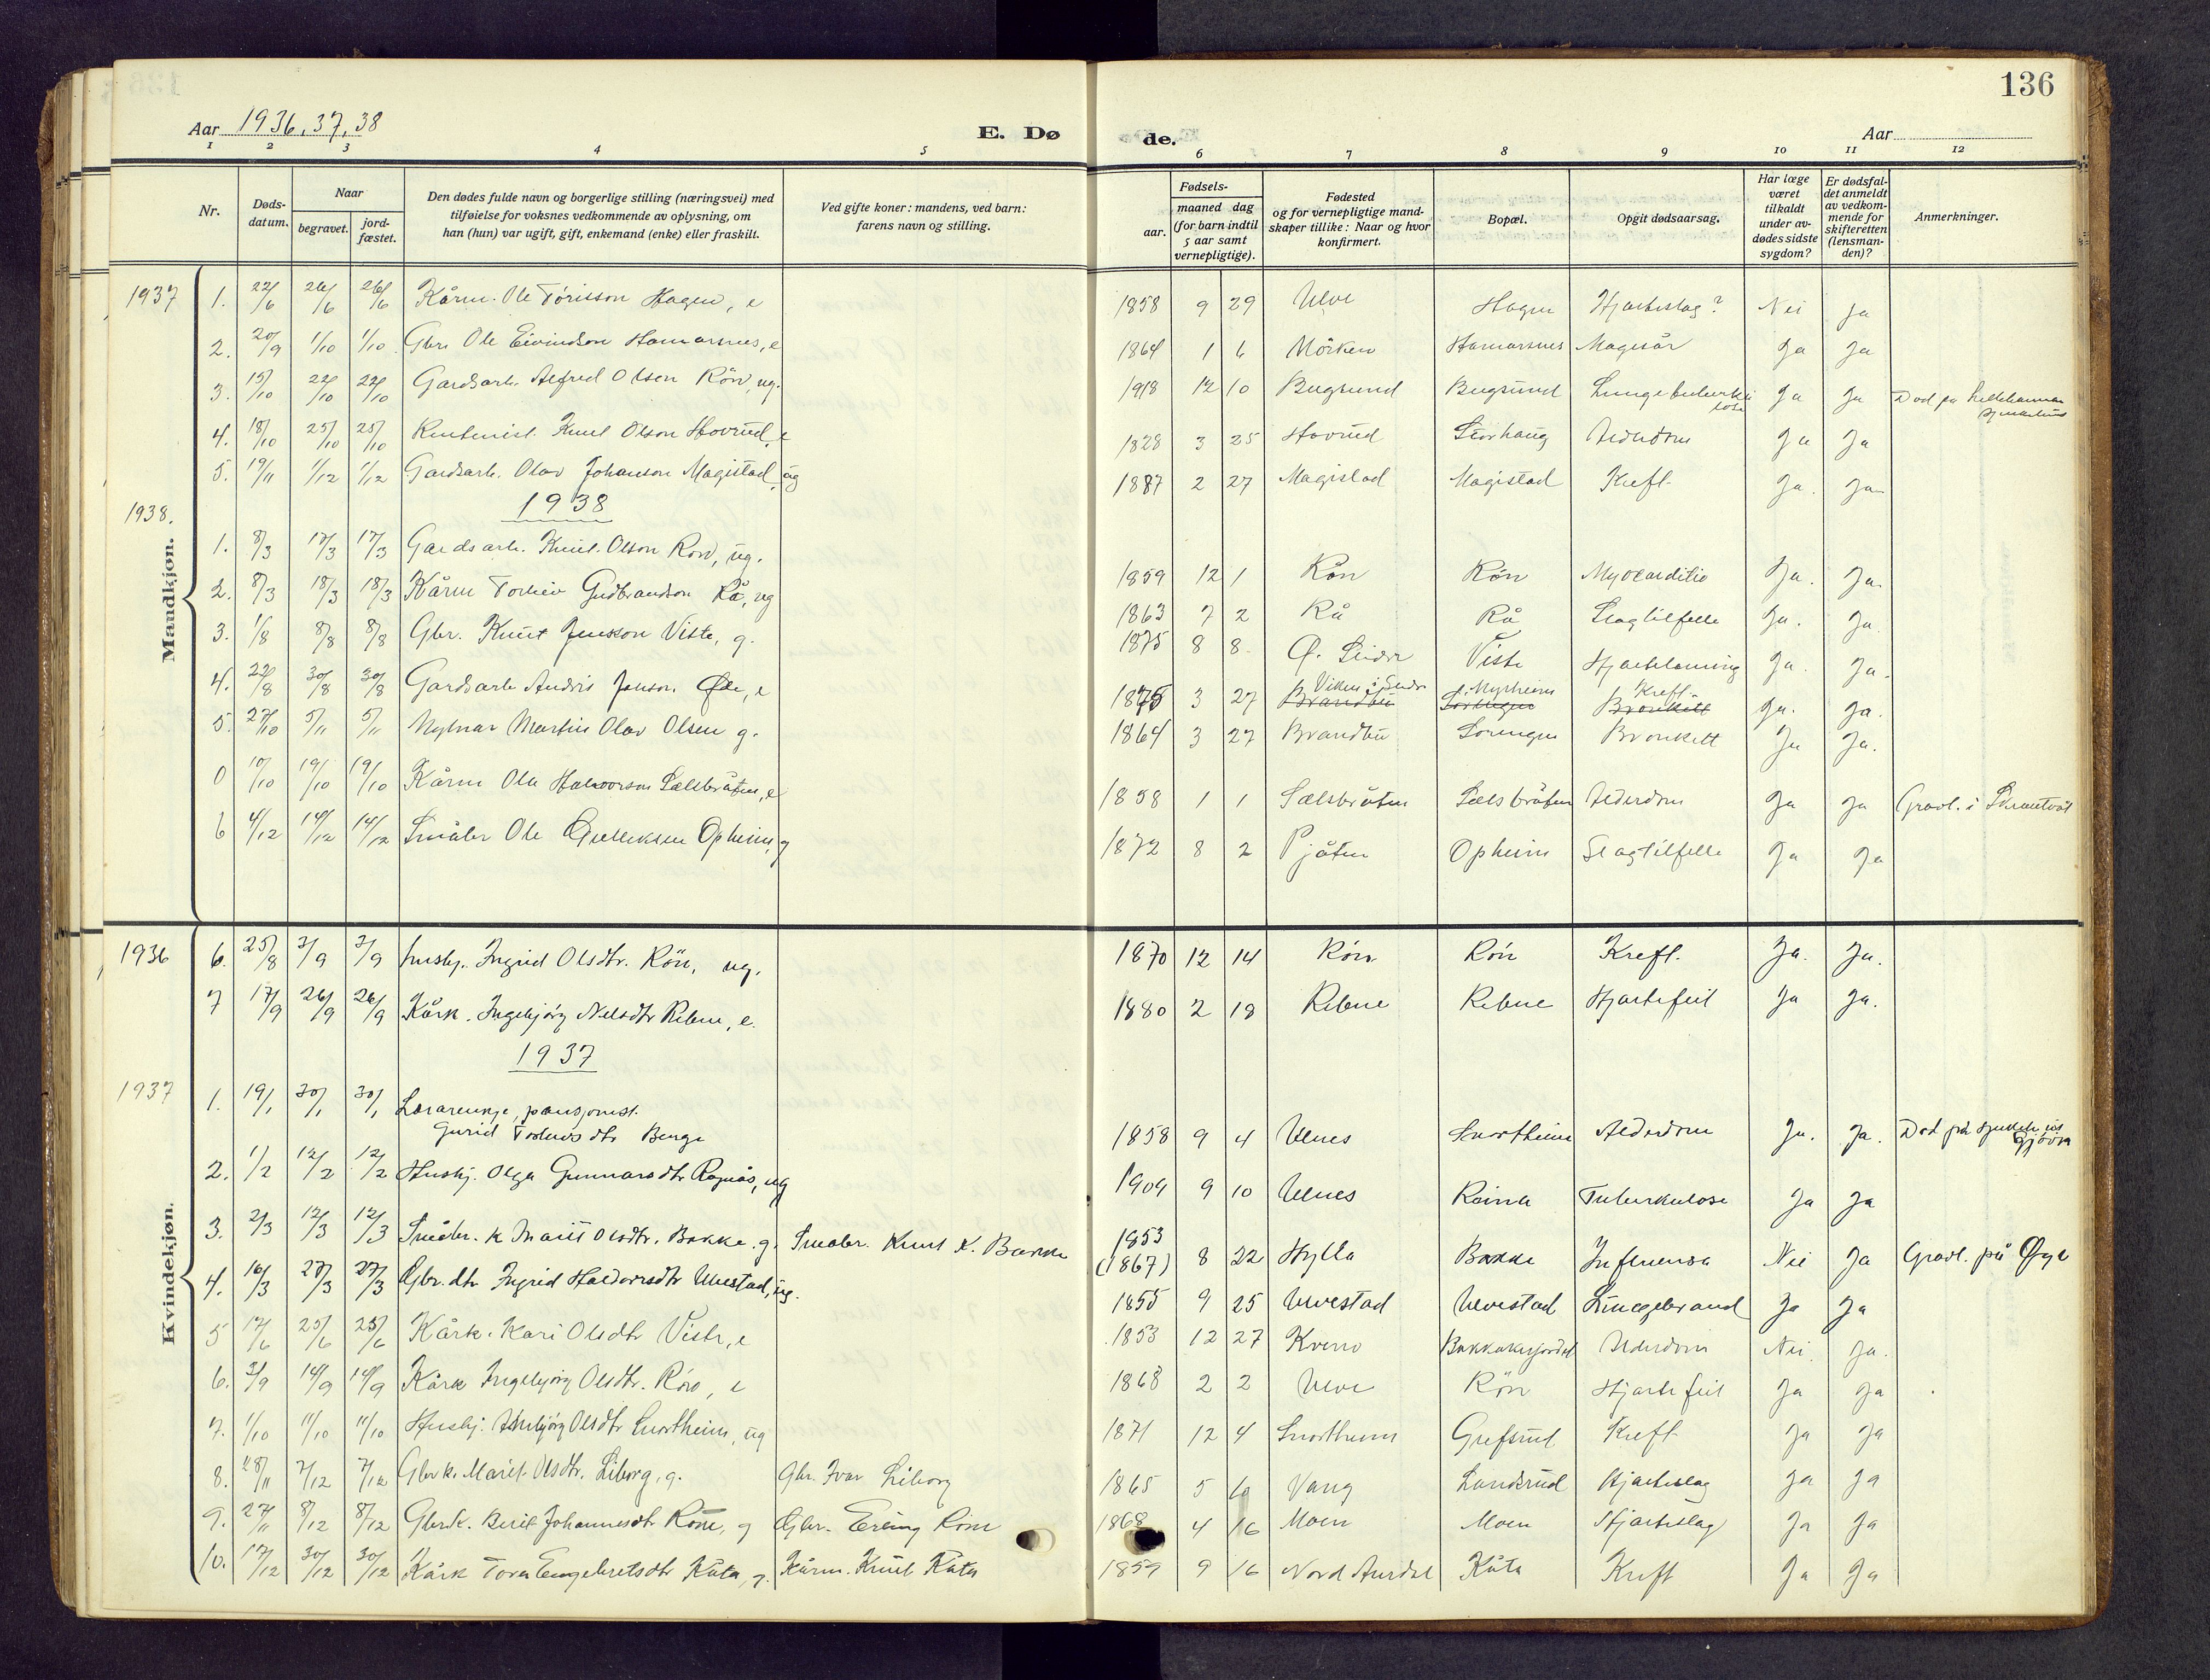 136
Aar 1936, 37, 38
E. Dø
de.
Aar
1 2 3 4 5 6 7 8 9 10 11 12
Nr.
Døds-datum.
Naar
begravet.
jord-fæstet.
Den dødes fulde navn og borgerlige stilling (næringsvei) med
tilføielse for voksnes vedkommende av oplysning, om
han (hun) var ugift, gift, enkemand (enke) eller fraskilt.
Ved gifte koner: mandens, ved barn:
farens navn og stilling.
Fødsels-
aar.
maaned dag
(for barn indtil
5 aar samt
vernepligtige).
Fødested
og for vernepligtige mand-
skaper tillike: Naar og hvor
konfirmert.
Bopæl.
Opgit dødsaarsag.
Har læge
været
tilkaldt
under av-
dødes sidste
sygdom?
Er dødsfal-
det anmeldt
av vedkom-
mende for
skifteretten
(lensman-
den)?
Anmerkninger.
Mandkjøn.
1937 1. 22/6 26/6 26/6 Kårm. Ole Torisson Hagen, e 1858 9 29 Ulve Hagen Hjarteslag? Nei Ja
2. 20/9 1/10 1/10 Gbr. Ole Eivindson Hamarsnes, e 1864 1 6 Mörken Hamarsnes Magesår Ja Ja
3. 15/10 22/10 22/10 Gardsarb. Alfred Olsen Rön, ug. 1918 12 10 Bugrund Bugrund Lungetuberku
lose Ja Ja Död på Lillehammer
sjukehus
4. 18/10 25/10 25/10 Rentenist. Knut Olson Hovrud, e 1828 3 25 Hovrud Storhaug Alderdom Ja Ja
5. 19/11 1/12 1/12 Gardsarb. Olav Johanson Magistad, ug 1887 2 27 Magistad Magistad Kreft Ja. Ja
1938
1938. 1. 8/3 17/3 17/3 Gardsarb. Knut Olson Rön, ug. 1859 12 1 Rön Rön Myocarditis Ja. Ja.
2. 8/3 18/3 18/3 Kårm Torleiv Gudbrandson Rå, ug 1863 7 2 Rå Rå Slagtilfelle Ja. Ja.
3. 1/8 8/8 8/8 Gbr. Knut Jensson Viste, g. 1875 8 8 Ø. Slidre Viste Hjartelaming Ja. Ja.
4. 22/8 30/8 30/8 Gardsarb Andris Jonson Øde, e 1875 3 27 Viken i Slidre Myrheim Kreft Ja. Ja.
Brandbu Sörengen Bronkitt
5. 27/10 5/11 5/11 Martin Olav Olsen g. 1864 3 27 Brandbu Sörengen Bronkitt Ja Ja.
0 10/10 19/10 19/10 Kårm Ole Halvorson Sælsbråten, e 1858 1 1 Sælsbråten Sælsbråten Alderdom Ja Ja Gravl. i Skrautvål
6 4/12 14/12 14/12 Småbr Ole Gulleksen Opheim, g 1872 8 2 Pjåten Opheim Slagtilfelle Ja Ja
Kvindekjøn.
1936 6. 25/8 3/9 3/9 husbj. Ingrid Olsdtr. Rön, ug. 1870 12 14 Rön Rön Kreft. Ja. Ja.
7 17/9 26/9 26/9 Kårk. Ingebjörg Nelsdtr Rebne, e. 1880 2 18 Rebne Rebne Hjartefeil Ja Ja.
1937
1937 1. 19/1 30/1 30/1 Lærarenkje, pensjonist.
Gurid Torleivsdtr Berge 1858 9 4 Ulnes Snortheim Alderdom Ja. Ja. Död på sjukehus
Gjövik
2. 1/2 12/2 12/2 Husbj. Olga Gunnarsdtr Rognås, ug 1909 9 10 Ulnes Raina Tuberkulose Ja Ja
3. 2/3 12/3 12/3 Småbr. k Marit Olsdtr. Bakke. g. Småbr. Knut K. Bakke 1853
(1867) 8 22 Hylla Bakke Influensa Nei Ja Gravl. på Øye
4. 16/3 27/3 27/3 Gbr. dtr Ingrid Haldorsdtr Ulvestad, ug. 1855 9 25 Ulvestad Ulvestad Lungebrand Ja Ja
5 17/6 25/6 25/6 Kårk. Kari Olsdtr Viste, e 1853 12 27 Kvern Bakkakrjordet Alderdom Nei Ja.
6. 3/9 14/9 14/9 Kårk Ingebjörg Olsdtr. Rön, e 1868 2 2 Ulve Rön Hjartefeil Ja Ja
7. 1/10 11/10 11/10 Husbj. Olsdtr Snortheim, ug 1871 12 4 Snortheim Grefsrud Kreft Ja Ja
8. 28/11 7/12 7/12 Gbrk. Marit Olsdtr. Liborg, g. Gbr. Ivar Liborg 1865 5 10 Vang Landsrud Hjarteslag Ja Ja
9. 27/11 8/12 8/12 Gbrk. Berit Johannesdtr Rone, g Gbr. Erling Rone 1868 4 16 Moen Moen Hjarteslag Ja Ja
10. 17/12 30/12 30/12 Kårk Tora Engebretsdtr Kåta, g. Kårm. Knut Kåta 1859 9 16 Nord Aurdal Kåta Kreft Ja Ja